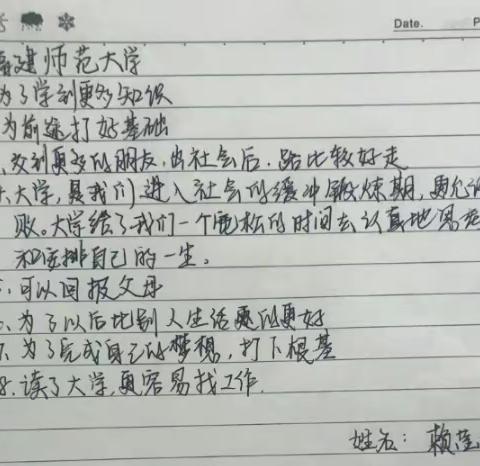 Date.
福建师范大学
为了学到更多知识
为前途打好基础
、交到更多的朋友,出社会后,路比较好走
、大学,是我们进入社会的缓冲锻炼期,更允许
败。大学给了我们一个轻松的时间去认真地思考
和安排自己的一生。
、可以回报父母
、为了以后比别人生活更的更好
7.为了完成自己的梦想,打下根基
8.读了大学,更容易找工作.
姓名:赖莹